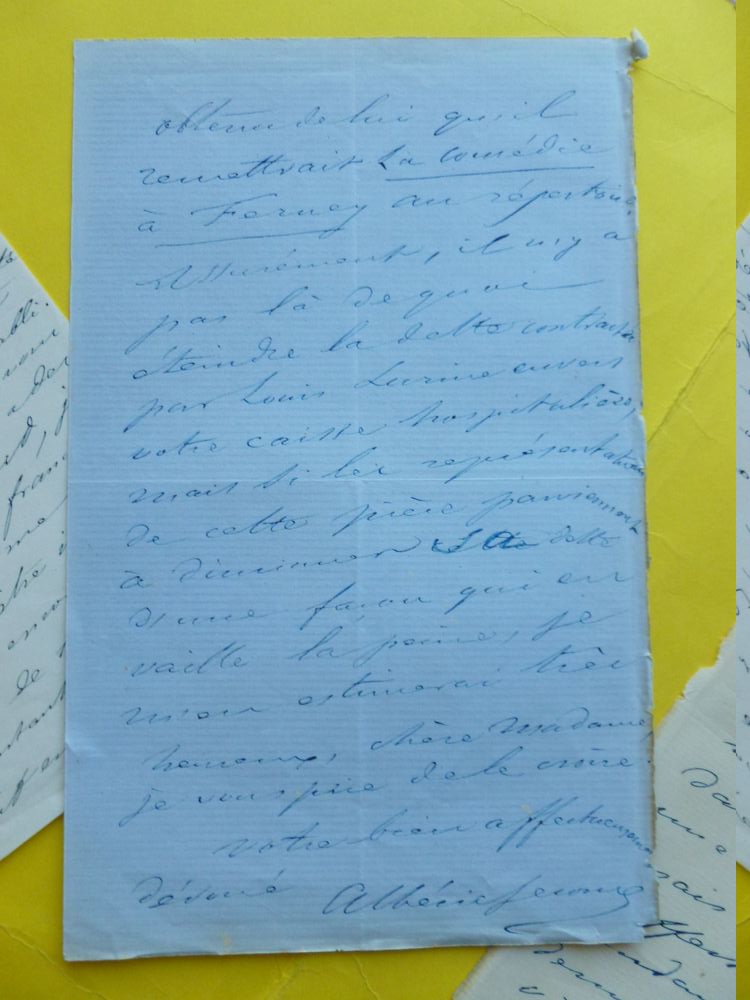 obtenu de lui qu'il
remettrait La Comédie
à Ferney au répertoire.
Assurément, il n'y a
pas là de quoi
éteindre la dette contractée
par Louis Lurine envers
votre caisse hospitalière,
mais si les représentations
de cette pièce parviennent
à diminuer sa dette
d'une façon qui en
vaille la peine, je
m'en estimerai très
heureux, chère Madame,
je vous prie de le croire.
votre bien affectueusement
dévoué Albéric Second